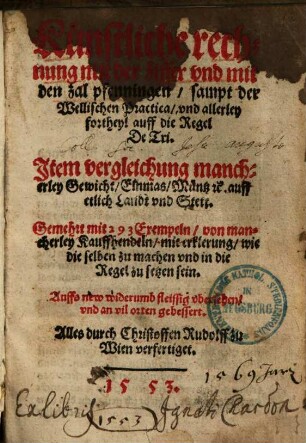 Künstliche rech-
nung mit der ziffer vnd mit
den zal pfenningen / sampt der
Wellischen Practica / vnd allerley
fortheyl auff die Regel
De Tri.
Item vergleichung manch-
erley Gewicht / Elnmas / Müntz ꝛc. auff
etlich Landt vnd Stett.
Gemehrt mit 293 Exempeln / von man-
cherley Kauffhendeln / mit erklerung / wie
die selben zu machen vnd in die
Regel zu setzen sein.
Auffs new widerumb fleissig vbersehen /
vnd an vil orten gebessert.
Alles durch Christoffen Rudolff zu
Wien verfertiget.
1553.
1569
Ex Libris
1553